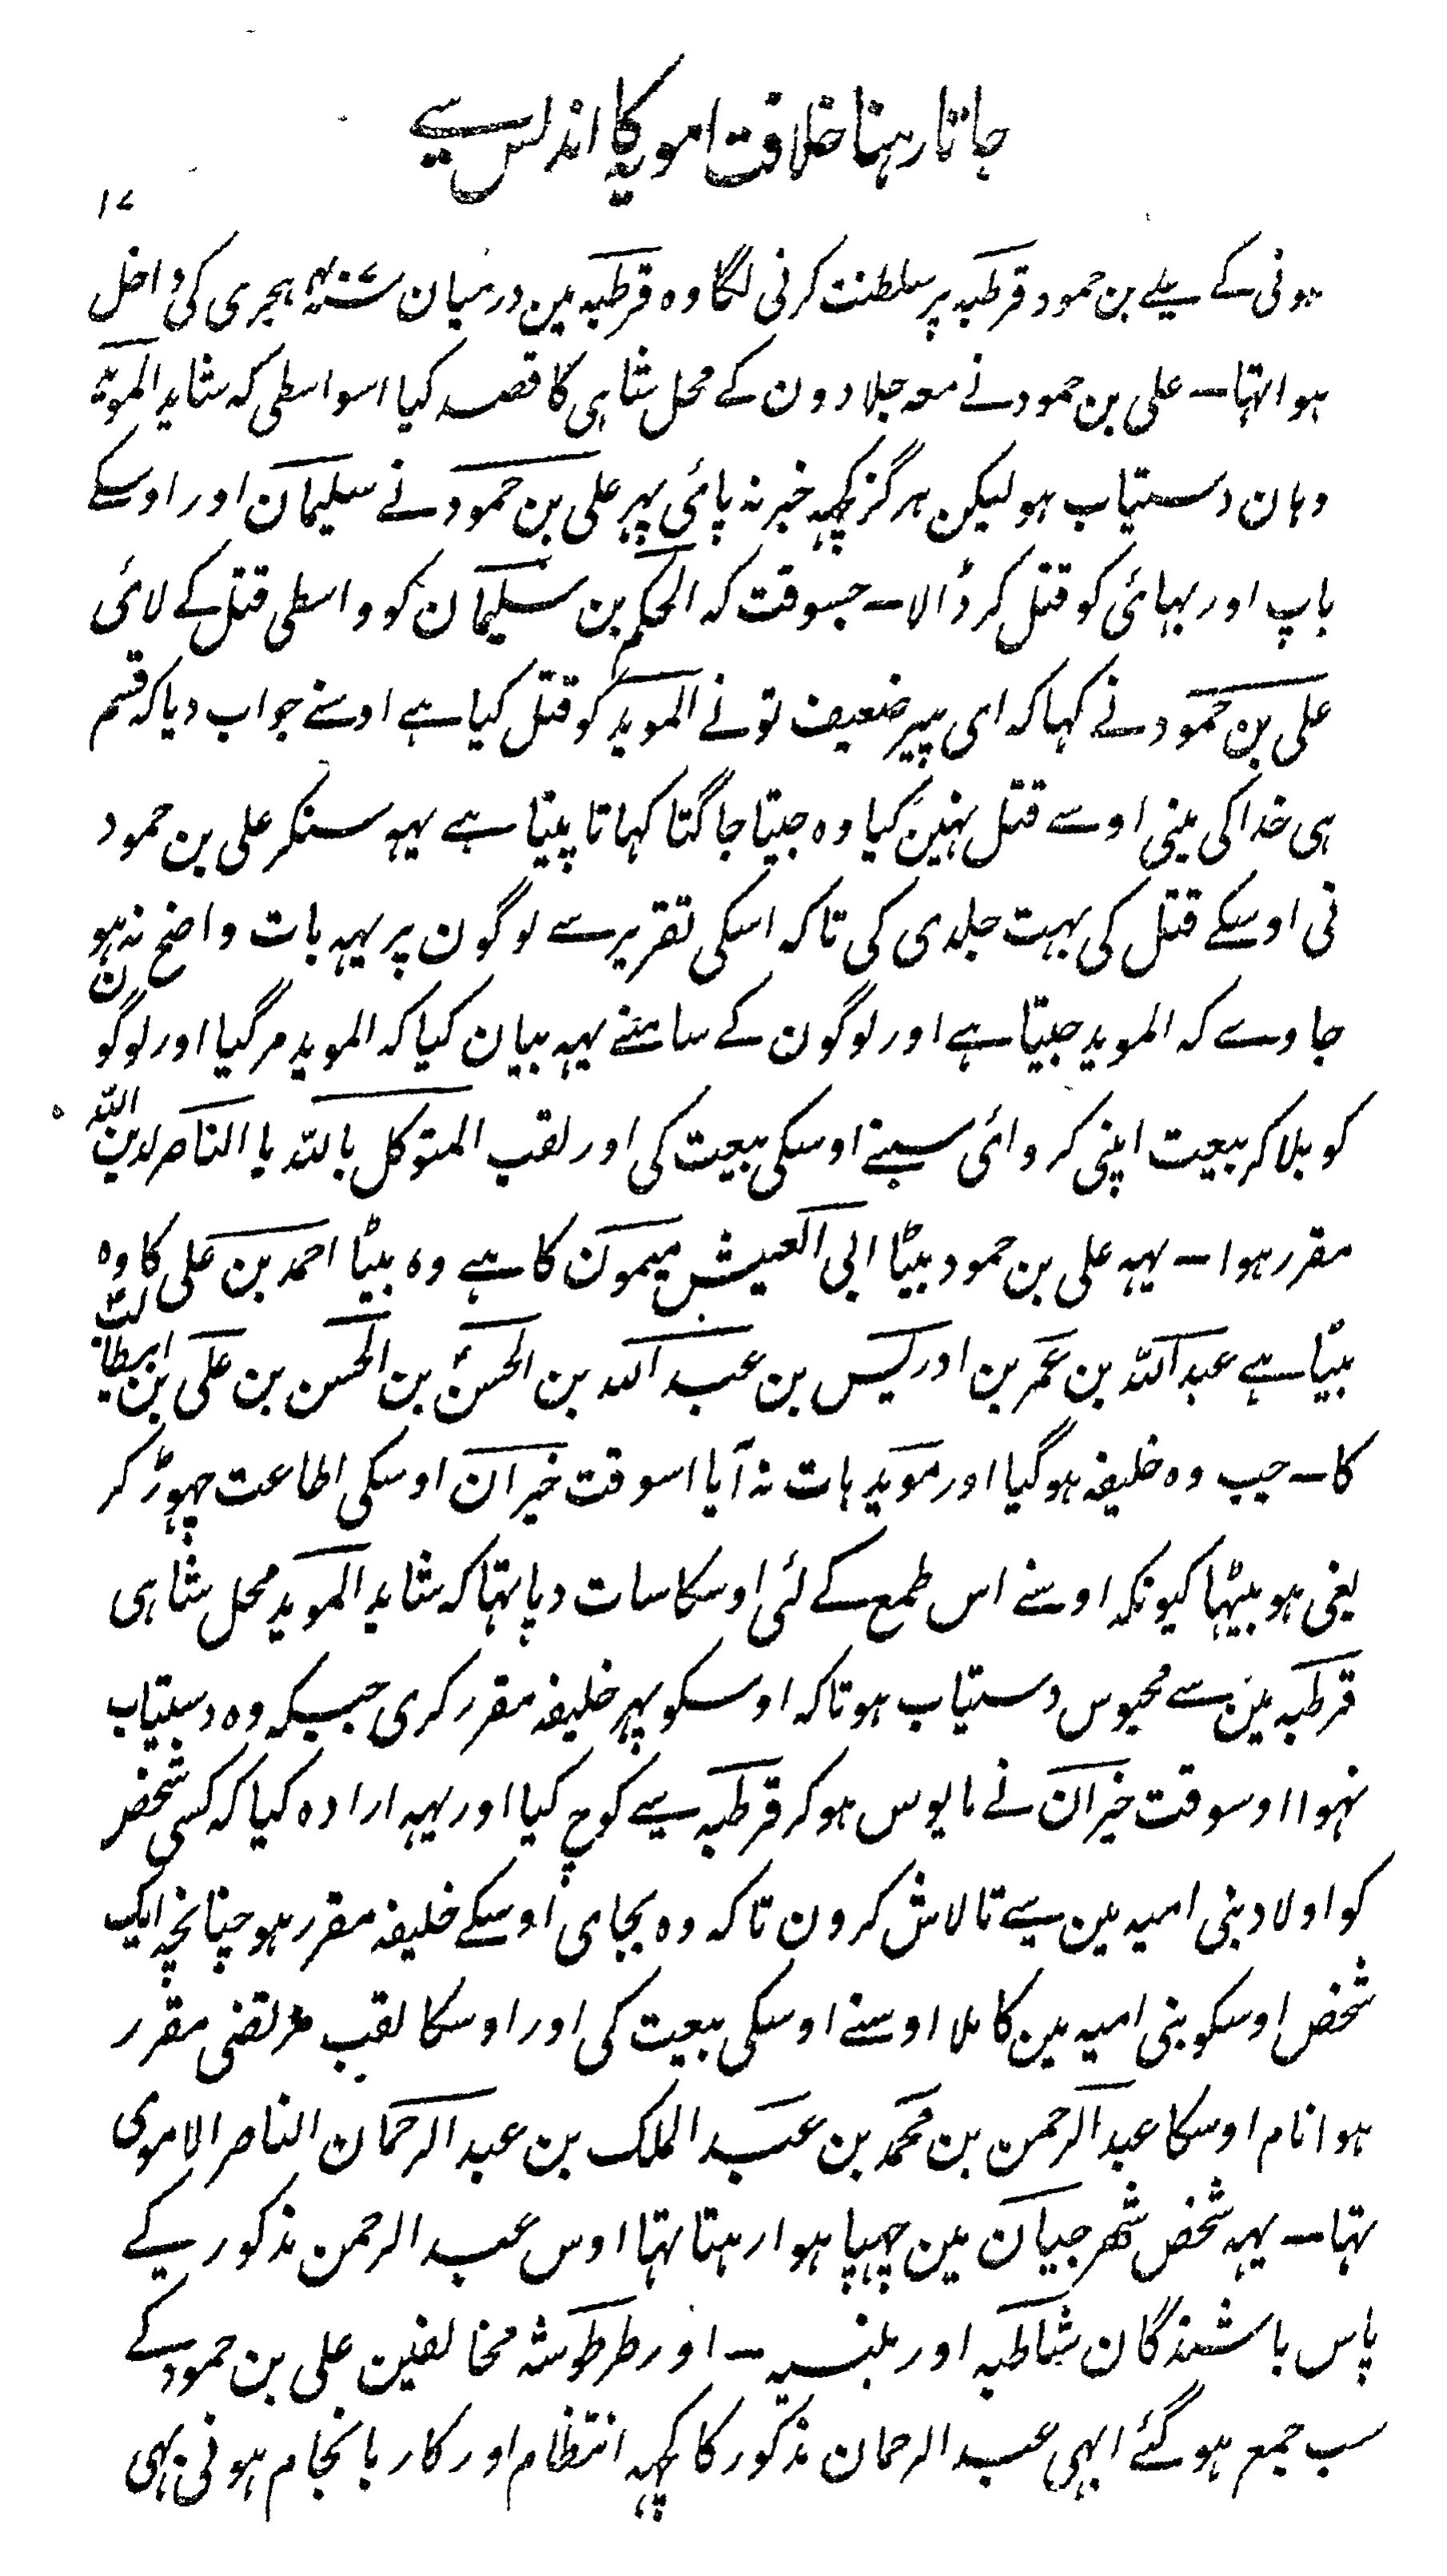 جاتا رہنا خلافت امویہ کا اندلس سے
۱۷
ہونی کے یلے بن حمود قرطبہ پر سلطنت کرنی لگا وہ قرطبہ مین درمیان ۴۰۷ ہجری کی داخل
ہوا تہا۔ علی بن حمود نے معہ جلادون کے محل شاہی کا قصد کیا اسواسطی کہ شاید الموید
وہان دستیاب ہو لیکن ہرگز کچہہ خبر نہ پائی پہر علی بن حمود نے سلیمان اور اوسکے
باپ اور بہائی کو قتل کر ڈالا۔ جسوقت کہ الحکم بن سلیمان کو واسطی قتل کے لائی
علی بن حمود نے کہا کہ ای پیر ضعیف تو نے الموید کو قتل کیا ہے اوسنے جواب دیا کہ قسم
ہی خدا کی مینی اوسے قتل نہین کیا وہ جیتا جاگتا کہاتا پیتا ہے یہہ سنکر علی بن حمود
نی اوسکے قتل کی بہت جلدی کی تاکہ اسکی تقریر سے لوگون پر یہہ بات واضح نہ ہو
جاوے کہ الموید جیتا ہے اور لوگون کے سامنے یہہ بیان کیا کہ الموید مر گیا اور لوگون
کو بلا کر بیعت اپنی کروائی سبنے اوسکی بیعت کی اور لقب المتوکل باللہ یا الناصر لدین اللہ
مقرر ہوا۔ یہہ علی بن حمود بیٹا ابی العیش میمون کا ہے وہ بیٹا احمد بن علی کا وہ
بیٹا ہے عبد اللہ بن عمر بن ادریس بن عبد اللہ بن الحسن بن الحسن بن علی بن ابیطالب
کا۔ جب وہ خلیفہ ہوگیا اور موید ہات نہ آیا اسوقت خیران اوسکی اطاعت چہوڑ کر
یعنی ہو بیٹہا کیونکہ اوسنے اس طمع کے لئی اوسکا سات دیا تہا کہ شاید الموید محل شاہی
قرطبہ مین سے محبوس دستیاب ہو تاکہ اوسکو پہر خلیفہ مقرر کری جبکہ وہ دستیاب
نہوا اوسوقت خیران نے مایوس ہو کر قرطبہ سے کوچ کیا اور یہہ ارادہ کیا کہ کسی شخص
کو اولاد بنی امیہ مین سے تالاش کرون تاکہ وہ بجای اوسکے خلیفہ مقرر ہو چنانچہ ایک
شخص اوسکو بنی امیہ مین کا ملا اوسنے اوسکی بیعت کی اور اوسکا لقب مرتضی مقرر
ہوا نام اوسکا عبد الرحمن بن محمد بن عبد الملک بن عبد الرحمان الناصر الاموی
تہا۔ یہہ شخص شہر جیان مین چہپا ہوا رہتا تہا اوس عبد الرحمن مذکور کے
پاس باشندگان شاطبہ اور بلنسیہ۔ اور طرطوشہ مخالفین علی بن حمود کے
سب جمع ہو گئے ابہی عبد الرحمان مذکور کا کچہہ انتظام اور کار بانجام ہونی نہی